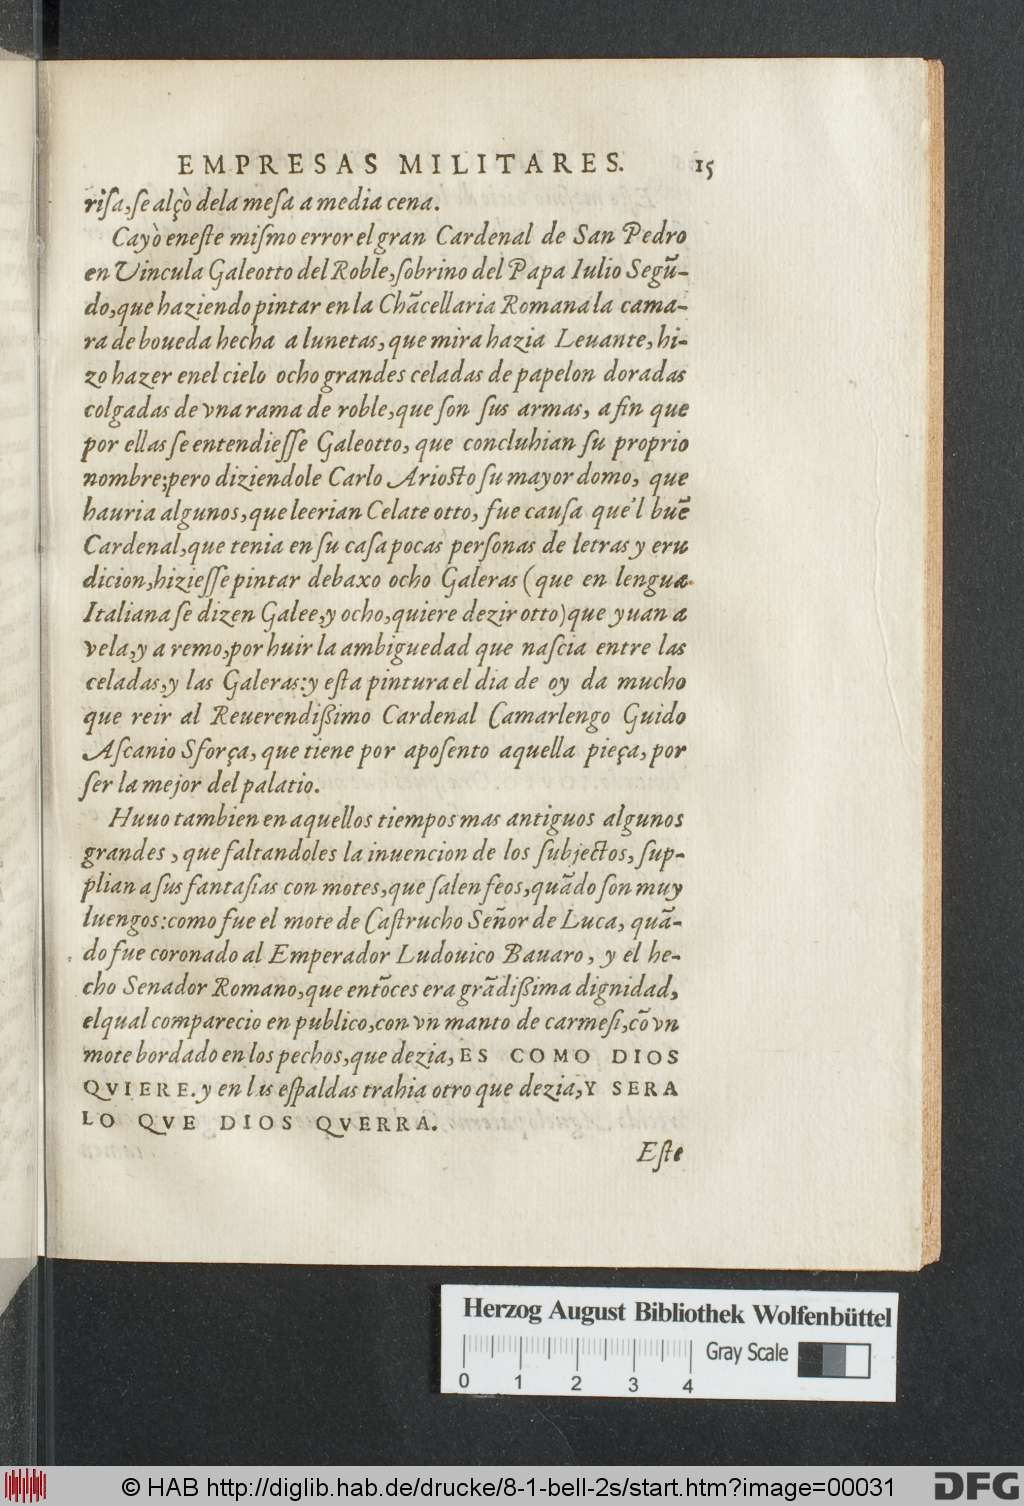 EMPRESAS MILITARES. 15
riſa, ſe alçò dela meſa a media cena.
Cayò eneſte miſmo error el gran Cardenal de San Pedro
en Vincula Galeotto del Roble, ſobrino del Papa Iulio Segũ-
do, que haziendo pintar en la Chãcellaria Romana la cama-
ra de boueda hecha a lunetas, que mira hazia Leuante, hi-
zo hazer enel cielo ocho grandes celadas de papelon doradas
colgadas de vna rama de roble, que ſon ſus armas, a fin que
por ellas ſe entendieſſe Galeotto, que concluhian ſu proprio
nombre; pero diziendole Carlo Arioſto ſu mayor domo, que
hauria algunos, que leerian Celate otto, fue cauſa que'l buẽ
Cardenal, que tenia en ſu caſa pocas perſonas de letras y eru
dicion, hizieſſe pintar debaxo ocho Galeras (que en lengua
Italiana ſe dizen Galee, y ocho, quiere dezir otto) que yuan a
vela, y a remo, por huir la ambiguedad que naſcia entre las
celadas, y las Galeras: y eſta pintura el dia de oy da mucho
que reir al Reuerendißimo Cardenal Camarlengo Guido
Aſcanio Sforça, que tiene por apoſento aquella pieça, por
ſer la mejor del palatio.
Huuo tambien en aquellos tiempos mas antiguos algunos
grandes, que faltandoles la inuencion de los ſubjectos, ſup-
plian a ſus fantaſias con motes, que ſalen feos, quãdo ſon muy
luengos: como fue el mote de Caſtrucho Señor de Luca, quã-
do fue coronado al Emperador Ludouico Bauaro, y el he-
cho Senador Romano, que entõces era grãdißima dignidad,
elqual comparecio en publico, con vn manto de carmeſi, cõ vn
mote bordado en los pechos, que dezia, ES COMO DIOS
QVIERE. y en las eſpaldas trahia otro que dezia, Y SERA
LO QVE DIOS QVERRA.
Eſte
Herzog August Bibliothek Wolfenbüttel
Gray Scale
0 1 2 3 4
© HAB http://diglib.hab.de/drucke/8-1-bell-2s/start.htm?image=00031
DFG